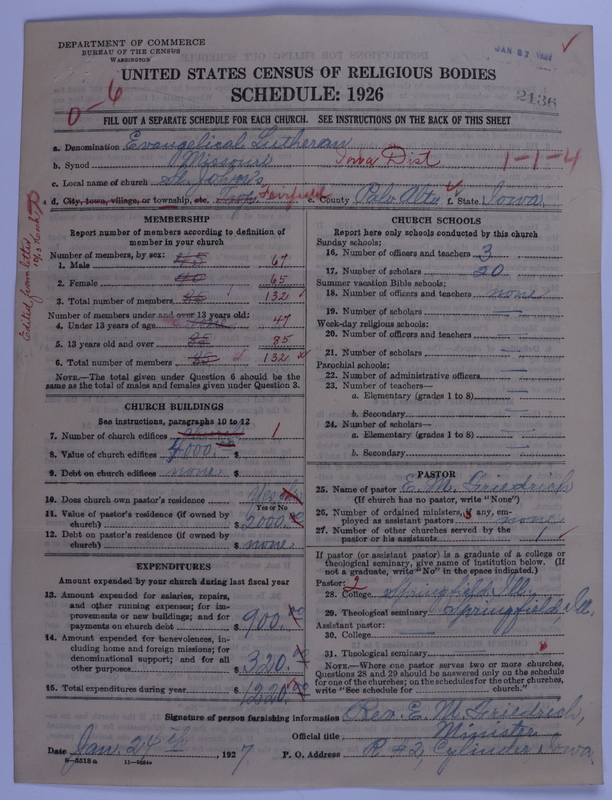 DEPARTMENT OF COMMERCE
BUREAU OF THE CENSUS
WASHINGTON
JAN 27
UNITED STATES CENSUS OF RELIGIOUS BODIES
SCHEDULE: 1926
0-6
2436
FILL OUT A SEPARATE SCHEDULE FOR EACH CHURCH. SEE INSTRUCTIONS ON THE BACK OF THIS SHEET
a. Denomination Evangelical Lutheran
b. Synod Missouri Iowa Dist 1-1-4
c. Local name of church St. John's
d. City, town, village, or township, etc. Fairfield e. County Palo Alto f. State Iowa
Edited from letter
MEMBERSHIP
Report number of members according to definition of member in your church
Number of members, by sex:
1. Male 67
2. Female 65
3. Total number of members 132
Number of members under and over 13 years old:
4. Under 13 years of age 47
5. 13 years old and over 85
6. Total number of members 132
NOTE.—The total given under Question 6 should be the same as the total of males and females given under Question 3.
CHURCH BUILDINGS
See instructions, paragraphs 10 to 12
7. Number of church edifices 1
8. Value of church edifices $ 4000
9. Debt on church edifices none $
10. Does church own pastor's residence Yes
Yes or No
11. Value of pastor's residence (if owned by church) $ 2000.00
12. Debt on pastor's residence (if owned by church) $ none
EXPENDITURES
Amount expended by your church during last fiscal year
13. Amount expended for salaries, repairs, and other running expenses; for improvements or new buildings; and for payments on church debt $ 900.00
14. Amount expended for benevolences, including home and foreign missions; for denominational support; and for all other purposes $ 320.
15. Total expenditures during year $ 1220.00
CHURCH SCHOOLS
Report here only schools conducted by this church
Sunday schools:
16. Number of officers and teachers 3
17. Number of scholars 20
Summer vacation Bible schools:
18. Number of officers and teachers none
19. Number of scholars —
Week-day religious schools:
20. Number of officers and teachers —
21. Number of scholars —
Parochial schools:
22. Number of administrative officers —
23. Number of teachers—
a. Elementary (grades 1 to 8) —
b. Secondary —
24. Number of scholars—
a. Elementary (grades 1 to 8) —
b. Secondary —
PASTOR
25. Name of pastor E. M. Friedrich
(If church has no pastor, write "None")
26. Number of ordained ministers, if any, employed as assistant pastors none
27. Number of other churches served by the pastor or his assistants —
If pastor (or assistant pastor) is a graduate of a college or theological seminary, give name of institution below. (If not a graduate, write "No" in the space indicated.)
Pastor: 2
28. College Springfield Ill.
29. Theological seminary Springfield, Ill.
Assistant pastor:
30. College —
31. Theological seminary
NOTE.—Where one pastor serves two or more churches, Questions 28 and 29 should be answered only on the schedule for one of the churches; on the schedules for the other churches, write "See schedule for ______ church."
Signature of person furnishing information Rev. E. M. Friedrich,
Official title Minister
Date Jan. 24th, 1927 P. O. Address R #2, Cylinder Iowa
8-5518a 11-9554